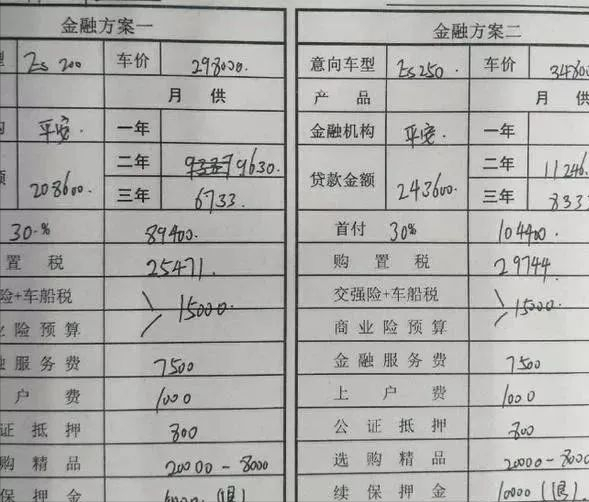 金融方案一 金融方案二
型 Es 200 车价 298000. 意向车型 Es250 车价 34800
月供 产品 月供
构 平安. 一年 金融机构 平安. 一年
额 208600. 二年 9630. 贷款金额 243600. 二年 11246.
三年 6733. 三年 8333
30% 89400. 首付 30% 104400.
置税 25471. 购置税 29744.
险+车船税 15000. 交强险+车船税 15000.
业险预算 商业险预算
融服务费 7500 金融服务费 7500
户费 1000 上户费 1000
证抵押 800 公证抵押 800
购精品 20000-8000 选购精品 20000-8000
续保押金 (退) 续保押金 10000 (退)